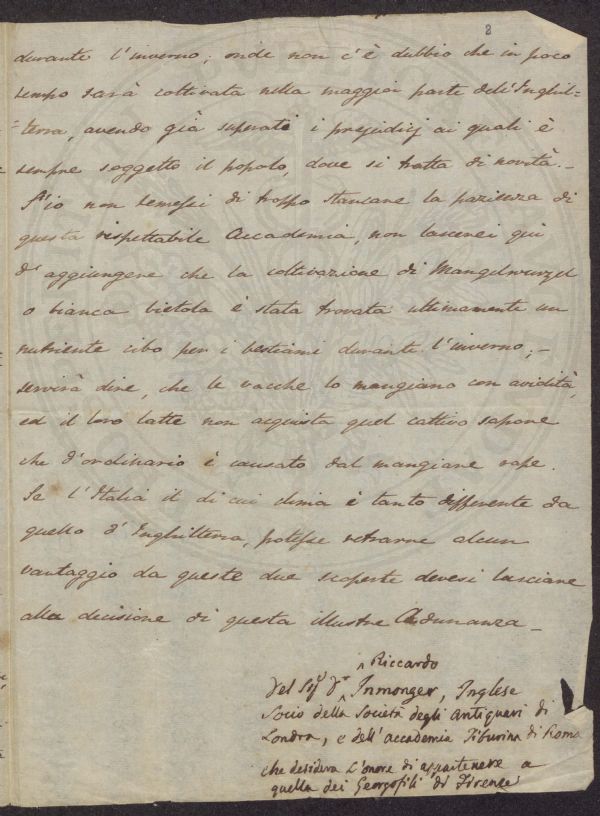 2
durante l'inverno; onde non c'è dubbio che in poco
tempo sarà coltivata nella maggior parte dell'Inghil=
=terra, avendo già superati i prejudizj ai quali è
sempre soggetto il popolo, dove si tratta di novità._
S'io non temessi di troppo stancare la pazienza di
questa rispettabile Accademia, non lascerei qui
d'aggiungere che la coltivazione di Mangelwurzel
o bianca bietola è stata trovata ultimamente un
nutriente cibo per i bestiami durante l'inverno;_
servirà dire, che le vacche lo mangiano con avidità,
ed il loro latte non acquista quel cattivo sapore
che d'ordinario è causato dal mangiare rape.
Se l'Italia il di cui clima è tanto differente da
quello d'Inghilterra, potesse ritrarne alcun
vantaggio da queste due scoperte devesi lasciare
alla decisione di questa illustre Adunanza_
Riccardo
Del Sigr Dr Inmonger, Inglese
Socio della Società degli Antiquari di
Londra, e dell'Accademia Tiburina di Roma
che desidera l'onore di appartenere a
quella dei Georgofili di Firenze